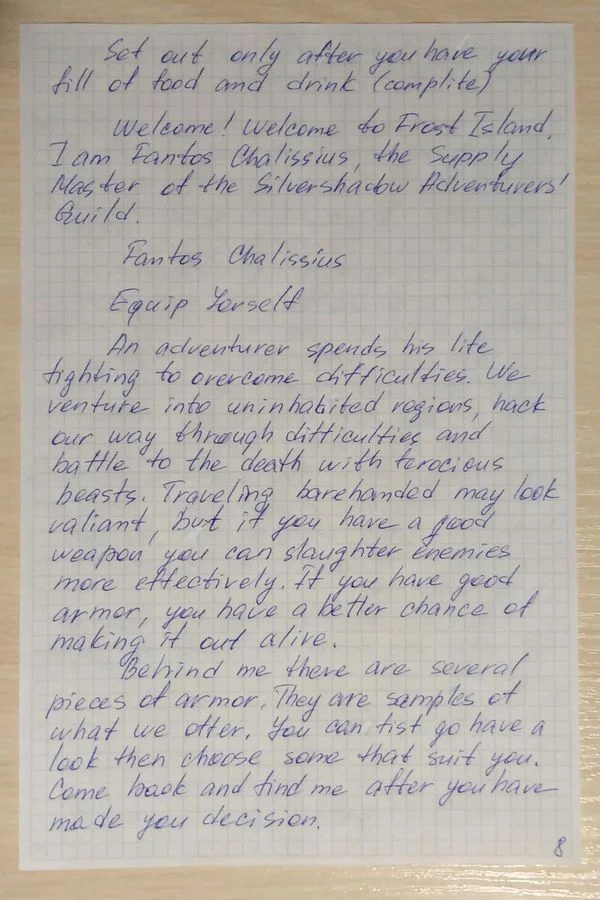 Set out only after you have your
fill of food and drink (complite)
Welcome! Welcome to Frost Island.
I am Fantos Chalissius, the Supply
Master of the Silvershadow Adventurers'
Guild.
Fantos Chalissius
Equip Yorself
An adventurer spends his life
fighting to overcome difficulties. We
venture into uninhabited regions, hack
our way through difficulties and
battle to the death with ferocious
beasts. Traveling barehanded may look
valiant, but if you have a good
weapon you can slaughter enemies
more effectively. If you have good
armor, you have a better chance of
making it out alive.
Behind me there are several
pieces of armor. They are samples of
what we offer. You can fist go have a
look then choose some that suit you.
Come back and find me after you have
made you decision.
8